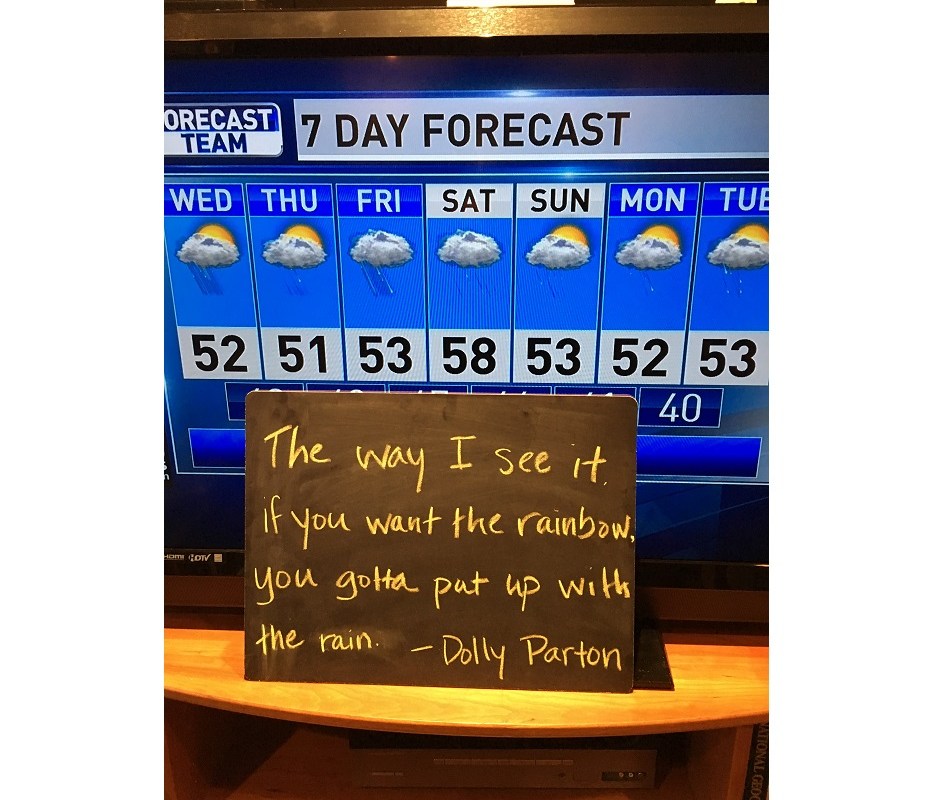 ORECAST
TEAM
7 DAY FORECAST
WED THU FRI SAT SUN MON TUE
52 51 53 58 53 52 53
40
The way I see it,
if you want the rainbow,
you gotta put up with
the rain. - Dolly Parton
HDMI HDTV